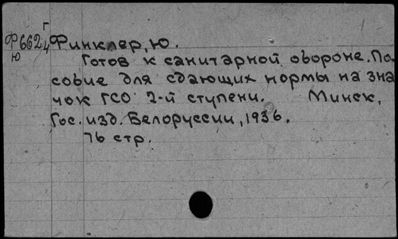 Г
Ф662ч Финклер, Ю.
Ю
Готов к санитарной обороне. По
собие для сдающих нормы на зна
чок ГСО 2-й ступени. Минск,
Гос. изд. Белоруссии, 1936.
76 стр.